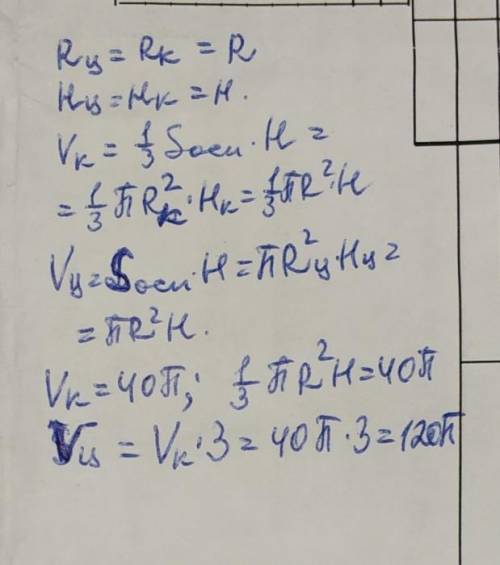 Rц = Rк = R
Hц = Hк = H.
Vк = 1/3 Sосн · H =
= 1/3 πRк² · Hк = 1/3 πR² · H
Vц = Sосн · H = πR²ц Hц =
= πR²H.
Vк = 40π; 1/3 πR²H = 40π
Vц = Vк · 3 = 40π · 3 = 120π